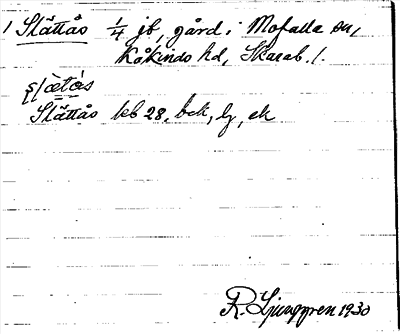 1 Slättås 1/4 jb, gård i Mofalla sn,
Kåkinds hd, Skarab. l.
Slättås leb 28, bck, lg, ek
R. Ljunggren 1930